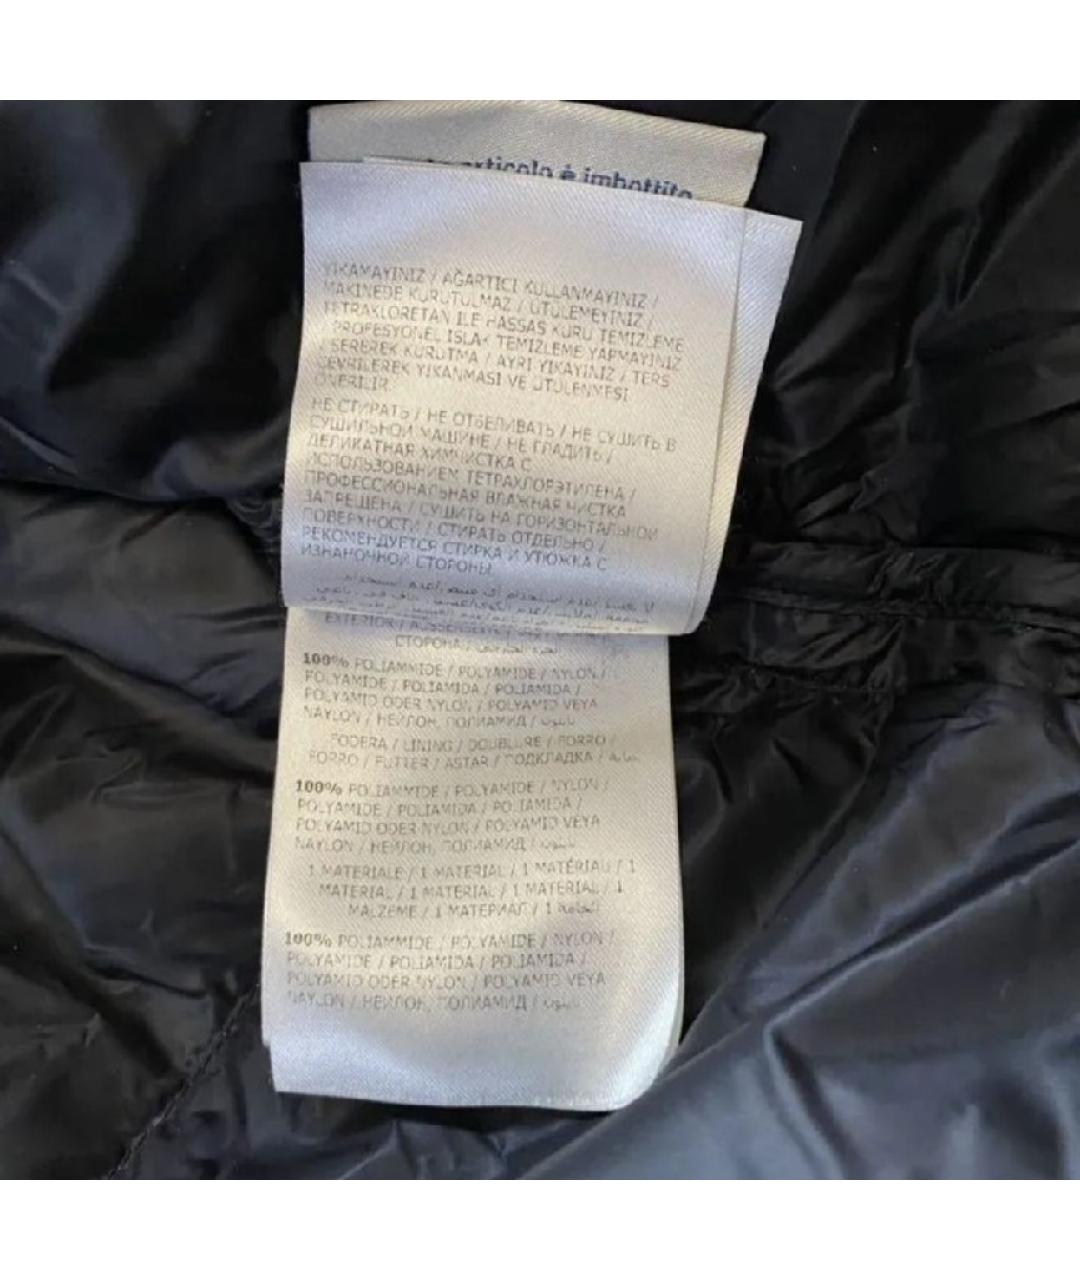 articolo è imbottito
YIKAMAYINIZ / AĞARTICI KULLANMAYINIZ /
MAKİNEDE KURUTULMAZ / ÜTÜLEMEYİNİZ /
TETRAKLORETAN ILE HASSAS KURU TEMİZLEME
/ PROFESYONEL ISLAK TEMİZLEME YAPMAYINIZ
/ SEREREK KURUTMA / AYRI YIKAYINIZ / TERS
ÇEVRİLEREK YIKANMASI VE ÜTÜLENMESİ
ÖNERİLİR.
НЕ СТИРАТЬ / НЕ ОТБЕЛИВАТЬ / НЕ СУШИТЬ В
СУШИЛЬНОЙ МАШИНЕ / НЕ ГЛАДИТЬ /
ДЕЛИКАТНАЯ ХИМЧИСТКА С
ИСПОЛЬЗОВАНИЕМ ТЕТРАХЛОРЭТИЛЕНА /
ПРОФЕССИОНАЛЬНАЯ ВЛАЖНАЯ ЧИСТКА
ЗАПРЕЩЕНА / СУШИТЬ НА ГОРИЗОНТАЛЬНОЙ
ПОВЕРХНОСТИ / СТИРАТЬ ОТДЕЛЬНО /
РЕКОМЕНДУЕТСЯ СТИРКА И УТЮЖКА С
ИЗНАНОЧНОЙ СТОРОНЫ
EXTERIOR / AUSSENSEITE /
СТОРОНА /
100% POLIAMMIDE / POLYAMIDE / NYLON /
POLYAMIDE / POLIAMIDA / POLIAMIDA /
POLYAMID ODER NYLON / POLYAMID VEYA
NAYLON / НЕЙЛОН, ПОЛИАМИД / نايلون
FODERA / LINING / DOUBLURE / FORRO /
FORRO / FUTTER / ASTAR / ПОДКЛАДКА / بطانة
100% POLIAMMIDE / POLYAMIDE / NYLON /
POLYAMIDE / POLIAMIDA / POLIAMIDA /
POLYAMID ODER NYLON / POLYAMID VEYA
NAYLON / НЕЙЛОН, ПОЛИАМИД / نايلون
1 MATERIALE / 1 MATERIAL / 1 MATÉRIAU / 1
MATERIAL / 1 MATERIAL / 1 MATERIAL / 1
MALZEME / 1 МАТЕРИАЛ / 1 الخامة
100% POLIAMMIDE / POLYAMIDE / NYLON /
POLYAMIDE / POLIAMIDA / POLIAMIDA /
POLYAMID ODER NYLON / POLYAMID VEYA
NAYLON / НЕЙЛОН, ПОЛИАМИД / نايلون